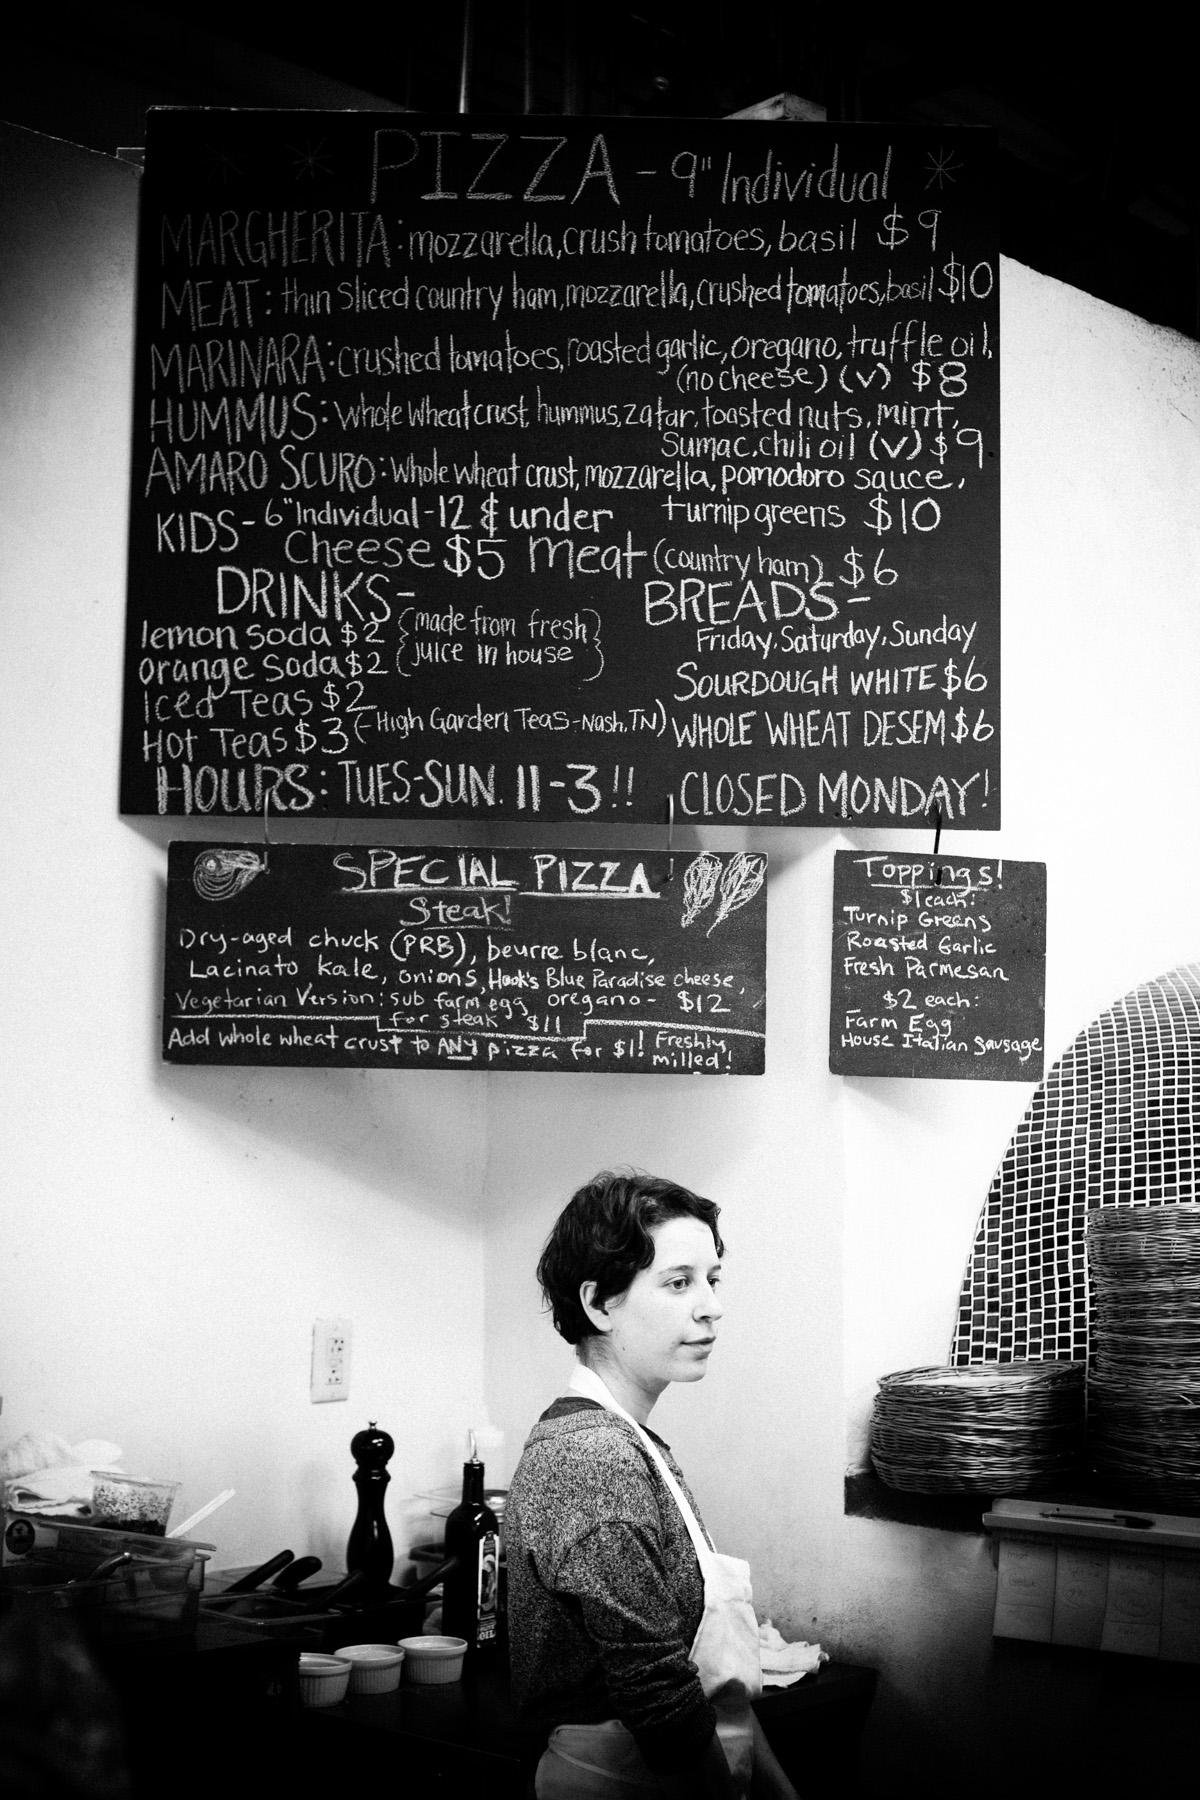 PIZZA - 9" Individual
MARGHERITA: mozzarella, crush tomatoes, basil $9
MEAT: thin sliced country ham, mozzarella, crushed tomatoes, basil $10
MARINARA: crushed tomatoes, roasted garlic, oregano, truffle oil,
(no cheese) (v) $8
HUMMUS: whole wheat crust, hummus, zatar, toasted nuts, mint,
sumac, chili oil (v) $9
AMARO SCURO: whole wheat crust, mozzarella, pomodoro sauce,
turnip greens $10
KIDS- 6" Individual - 12 & under
Cheese $5 Meat (country ham) $6
DRINKS-
lemon soda $2 {made from fresh}
orange soda $2 {juice in house}
Iced Teas $2
Hot Teas $3 (-High Garden Teas-Nash, TN)
BREADS-
Friday, Saturday, Sunday
SOURDOUGH WHITE $6
WHOLE WHEAT DESEM $6
HOURS: TUES-SUN. 11-3!! CLOSED MONDAY!
SPECIAL PIZZA
Steak!
Dry-aged chuck (PRB), beurre blanc,
Lacinato kale, onions, Hook's Blue Paradise cheese,
oregano - $12
Vegetarian Version: sub farm egg
for steak $11
Add whole wheat crust to ANY pizza for $1! Freshly
milled!
Toppings!
$1 each:
Turnip Greens
Roasted Garlic
Fresh Parmesan
$2 each:
Farm Egg
House Italian Sausage
OIL